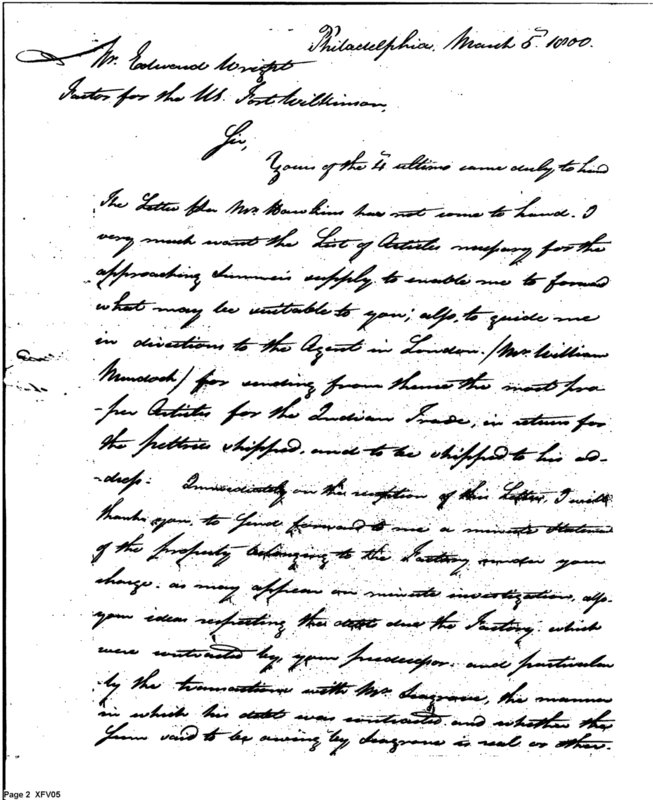 Philadelphia, March 5th 1800.
Mr. Edward Wright
Factor for the US. Fort Wilkinson,
Sir,
Yours of the 4th ultimo came duly to hand
The Letter for Mr. Hawkins has not come to hand. I
very much want the List of Articles necessary for the
approaching Summers supply, to enable me to forward
what may be suitable to you; also, to guide me
in directions to the Agent in London. (Mr. William
Murdoch) for sending from thence the most pro
-per Articles for the Indian Trade, in return for
the peltries shipped, and to be shipped to his ad-
-dress. Immediately on the reception of this Letter, I will
thank you, to send forward to me a minute
of the property belonging to the Factory under your
charge. as may appear on minute investigation, also
your ideas respecting the debts due the Factory. which
were contracted by your predecessor. and particular
ly the transactions with Mr. Seagrove, the manner
in which his debt was contracted and whether the
Sum said to be owing by Seagrove is real or other-
Page 2 XFV05